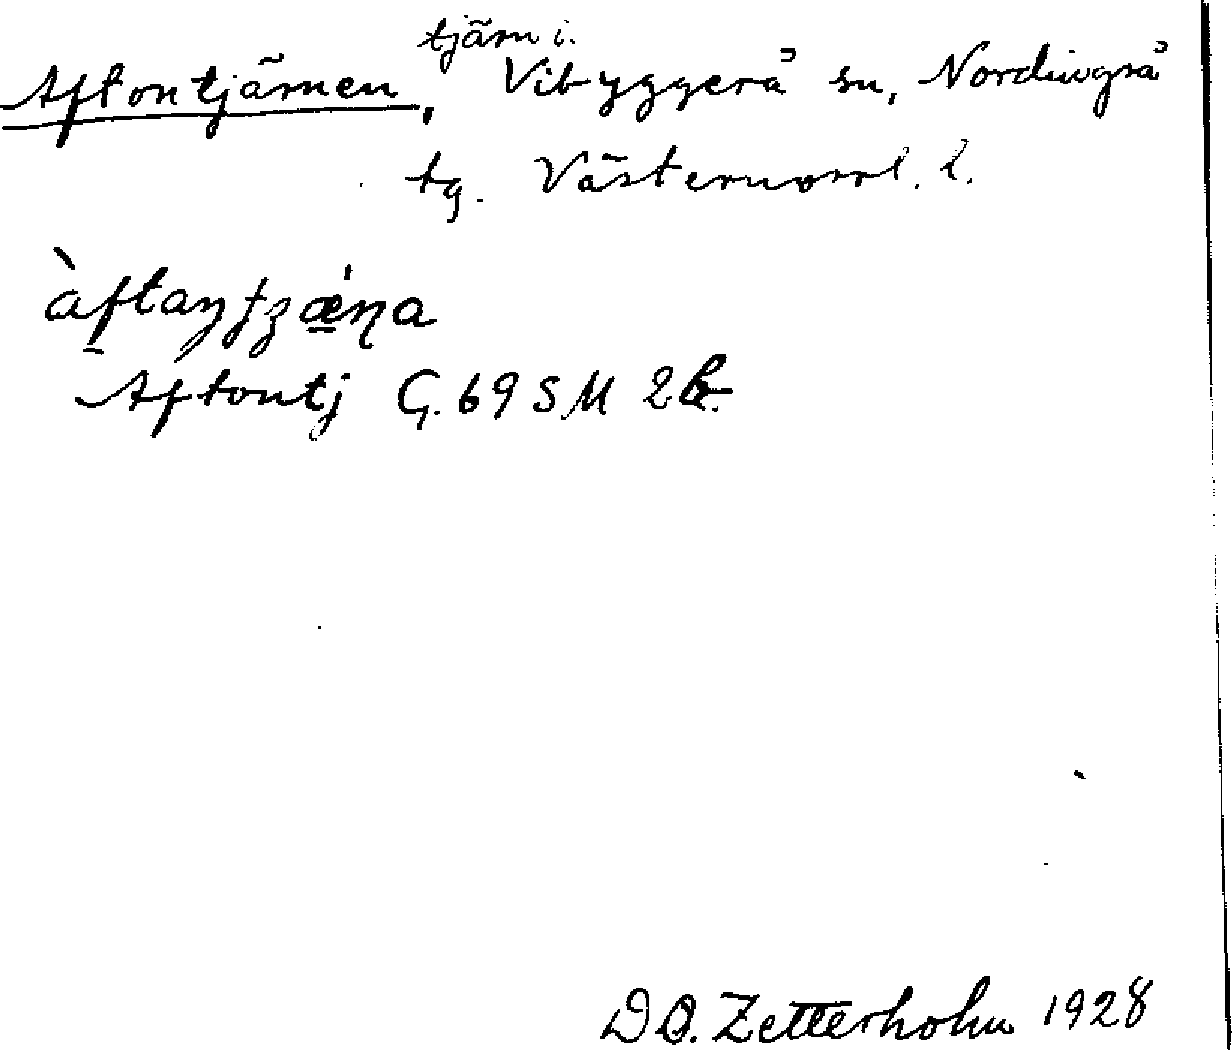 Aftontjärnen, tjärn i. Vibyggerå sn, Nordingrå
tg. Västernorrl. l.
Aftontj G. 69 SM 2
D O. Zetterholm 1928